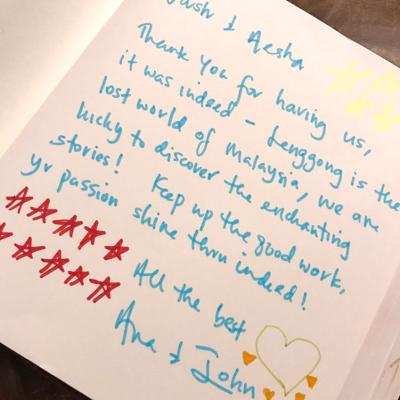 & Aesha
Thank you for having us,
it was indeed - Lenggong is the
lost world of Malaysia, we are
lucky to discover the enchanting
stories! Keep up the good work,
yr passion shine thru indeed!
All the best
Ana & John